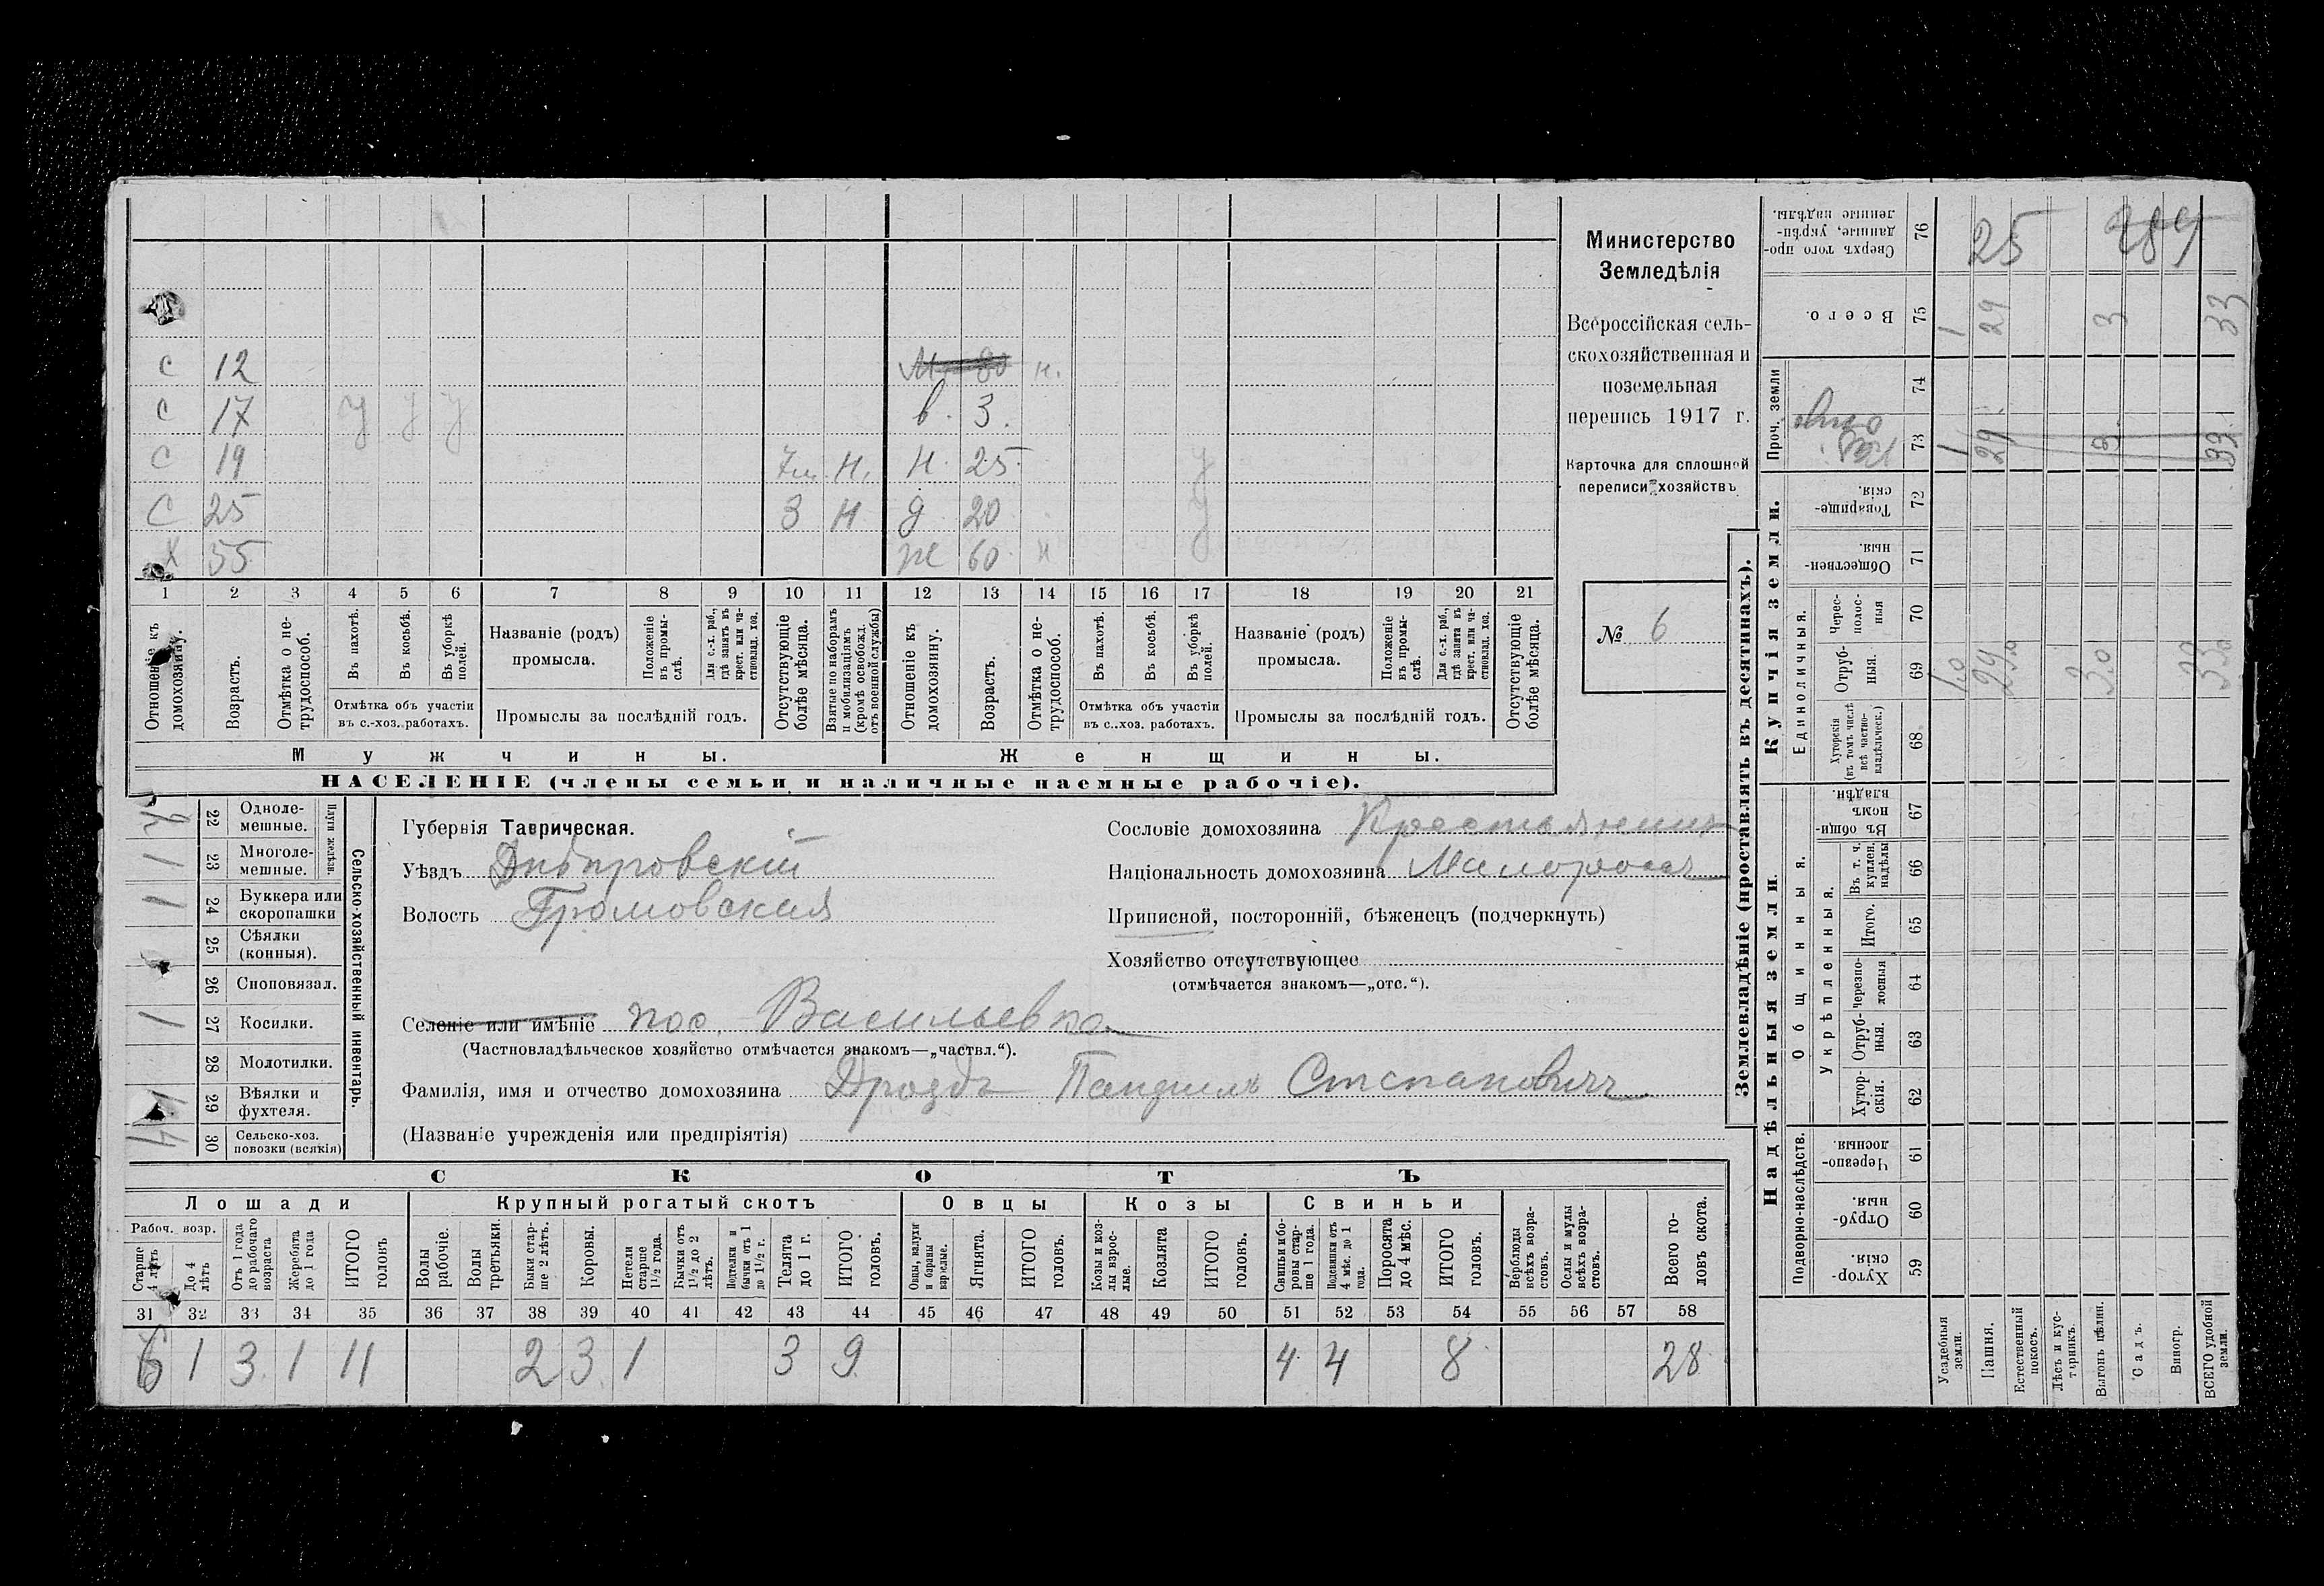 Министерство
Земледѣлія
Всероссійская сель-
скохозяйственная и
поземельная
перепись 1917 г.
Карточка для сплошной
переписи хозяйствъ
№ 6
с 12
с 17 у у у в. 3.
с 19 Н. н. 25
с 25 3 Н д 20
х 55 ж 60 н
1 2 3 4 5 6 7 8 9 10 11 12 13 14 15 16 17 18 19 20 21
Отношеніе къ домохозяину.
Возрастъ.
Отмѣтка о не-трудоспособ.
Въ пахотѣ.
Въ косьбѣ.
Въ уборкѣ полей.
Отмѣтка объ участіи
въ с.-хоз. работахъ.
Названіе (родъ)
промысла.
Положеніе въ промы-слѣ.
Для с.-х. раб., гдѣ занятъ въ крест. или ча-стновлад. хоз.
Промыслы за послѣдній годъ.
Отсутствующіе болѣе мѣсяца.
Взятые по наборамъ и мобилизаціямъ (кромѣ освобожд. отъ военной службы)
Отношеніе къ домохозяину.
Возрастъ.
Отмѣтка о не-трудоспособ.
Въ пахотѣ.
Въ косьбѣ.
Въ уборкѣ полей.
Отмѣтка объ участіи
въ с..хоз. работахъ.
Названіе (родъ)
промысла.
Положеніе въ промы-слѣ.
Для с.-х. раб., гдѣ занята въ крест. или ча-стновлад. хоз.
Промыслы за послѣдній годъ.
Отсутствующіе болѣе мѣсяца.
Мужчины.
Женщины.
НАСЕЛЕНІЕ (члены семьи и наличные наемные рабочіе).
Сельско-хозяйственный инвентарь.
Плуги желѣзн.
22 Одноле-мешные.
1 23 Многоле-мешные.
1 24 Буккера или скоропашки
25 Сѣялки (конныя).
26 Сноповязал.
1 27 Косилки.
28 Молотилки.
29 Вѣялки и фухтеля.
4 30 Сельско-хоз. повозки (всякія)
Губернія Таврическая.
Уѣздъ Днѣпровскій
Волость Громовская
Сословіе домохозяина Крестьянинъ
Національность домохозяина Малороссъ
Приписной, посторонній, бѣженецъ (подчеркнуть)
Хозяйство отсутствующее
(отмѣчается знакомъ—„отс.“).
Селеніе или имѣніе пос. Васильевка
(Частновладѣльческое хозяйство отмѣчается знакомъ—„частвл.“).
Фамилія, имя и отчество домохозяина Дроздъ Степановичъ
(Названіе учрежденія или предпріятія)
СКОТЪ
Лошади
Крупный рогатый скотъ
Овцы
Козы
Свиньи
Рабоч. возр.
Старше 4 лѣтъ
До 4 лѣтъ
Отъ 1 года до рабочаго возраста
Жеребята до 1 года
ИТОГО головъ
Волы рабочіе.
Волы третьяки.
Быки стар-ше 2 лѣтъ.
Коровы.
Нетели старше 1½ года.
Бычки отъ 1½ до 2 лѣтъ.
Подтелки и бычки отъ 1 до 1½ г.
Телята до 1 г.
ИТОГО головъ.
Овцы, валухи и бараны взрослые.
Ягнята.
ИТОГО головъ.
Козы и коз-лы взрос-лые.
Козлята
ИТОГО головъ.
Свиньи и бо-ровы стар-ше 1 года.
Подсвинки отъ 4 мѣс. до 1 года.
Поросята до 4 мѣс.
ИТОГО головъ.
Верблюды всѣхъ возра-стовъ.
Ослы и мулы всѣхъ возра-стовъ.
Всего го-ловъ скота.
31 32 33 34 35 36 37 38 39 40 41 42 43 44 45 46 47 48 49 50 51 52 53 54 55 56 57 58
6 1 3 1 11 2 3 1 3 9 4 4 8 28
Землевладѣніе (проставлять въ десятинахъ).
Надѣльныя земли.
Купчія земли.
Проч. земли
Подворно-наслѣдств.
Общинныя.
Укрѣпленныя.
Единоличныя.
Сверхъ того про-данные, укрѣп-ленные надѣлы. 76 25
Всего. 75 1 29 3 33
74
73 1 29 3 33
Товарище-скія. 72
Обществен-ныя. 71
Черес-полос-ныя 70
Отруб-ныя. 69 1.0 29.0 3.0 33.0
Хуторскія (въ томъ числѣ всѣ частно-владѣльческ.) 68
Въ общин-номъ владѣн. 67
Въ т. ч. куплен. надѣлы 66
Итого. 65
черезпо-лосныя 64
Отруб-ныя. 63
Хутор-скія. 62
Черезпо-лосныя. 61
Отруб-ныя. 60
Хутор-скія. 59
Усадебныя земли.
Пашня.
Естественный покосъ.
Лѣсъ и кус-тарникъ.
Выгонъ цѣлин.
Садъ.
Виногр.
ВСЕГО удобной земли.